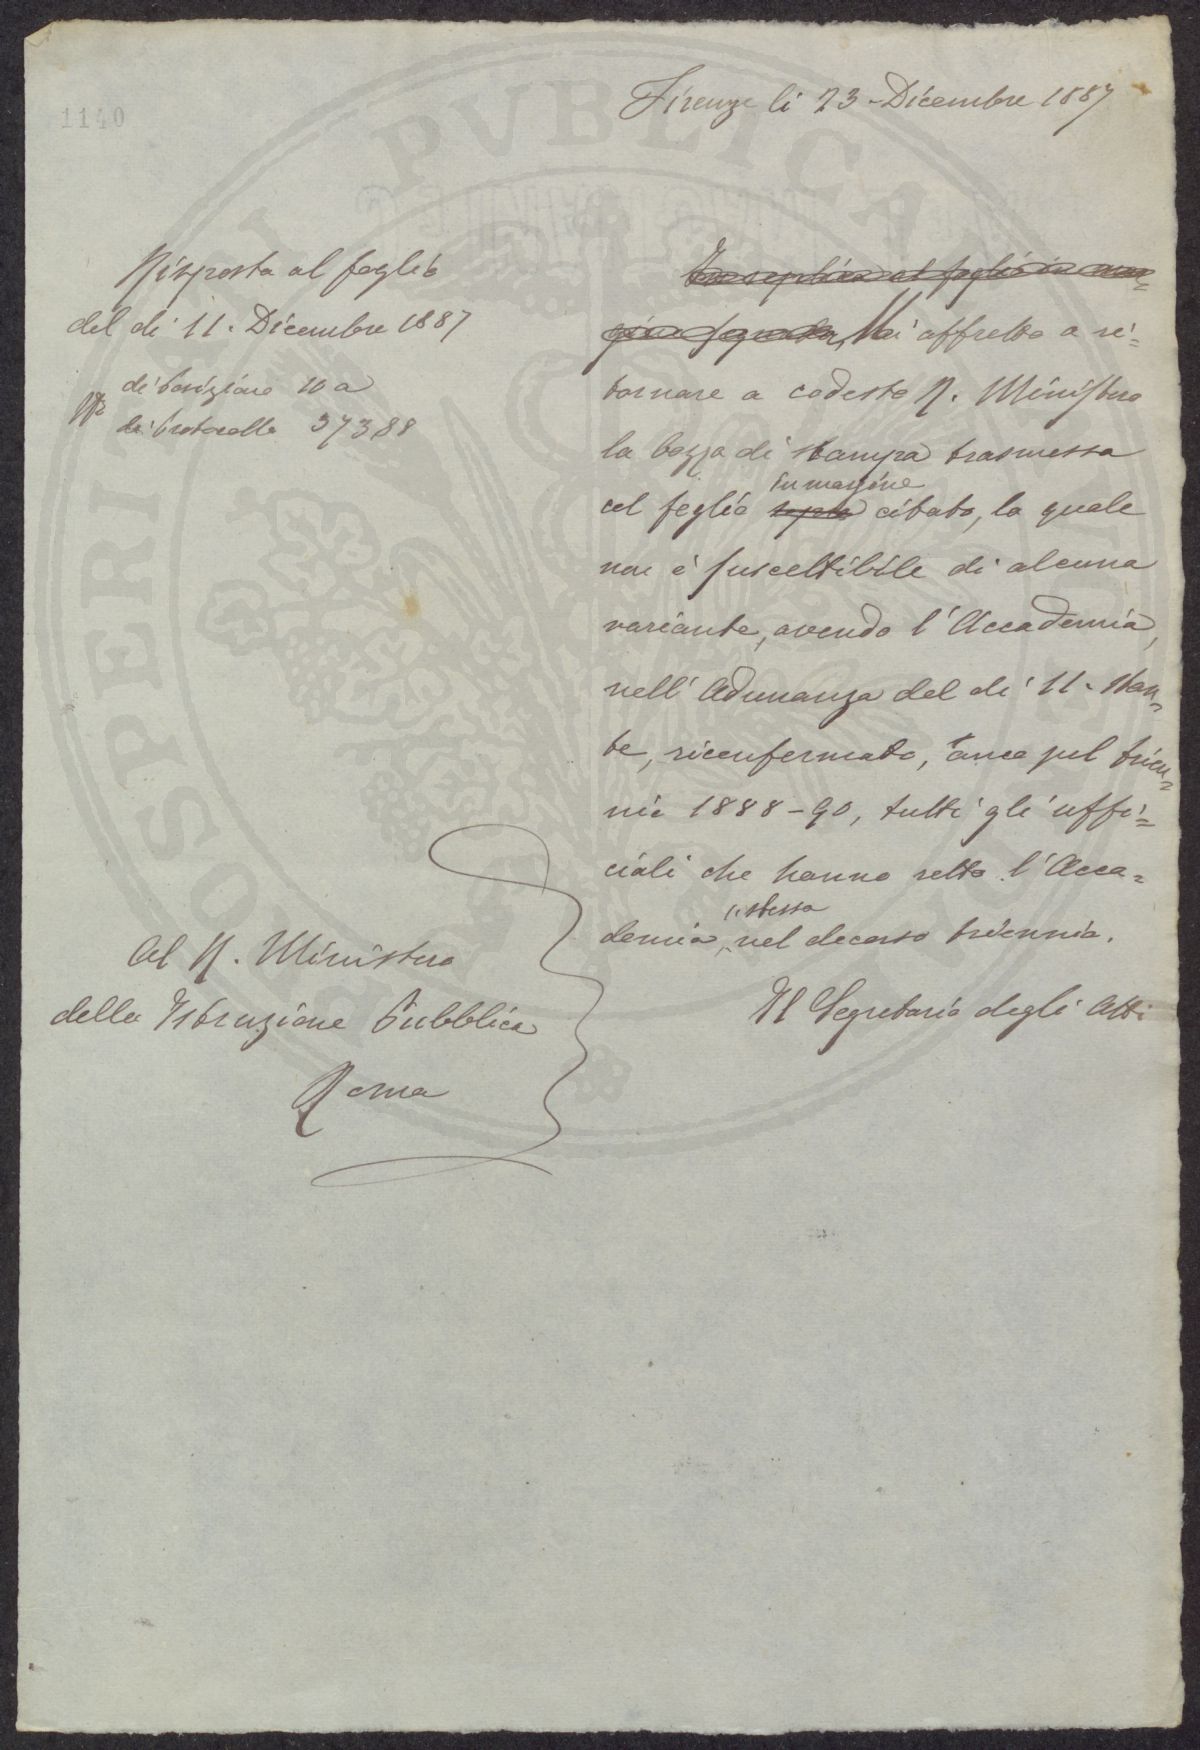 1140
Firenze li 23 Dicembre 1887
Risposta al foglio
del dì 11. Dicembre 1887
di Posizione 10 a
No
di Protocollo 37388
In replica al foglio in mar=
gine segnato, Mi affretto a ri=
tornare a codesto R. Ministero
la bozza di stampa trasmessa
in margine
col foglio sopra citato, la quale
non è suscettibile di alcuna
variante, avendo l'Accademia,
nell'Adunanza del dì 11. stan=
te, riconfermato, anco pel trien=
nio 1888-90, tutti gli uffi=
ciali che hanno retto l'Acca=
stessa
demia, nel decorso triennio.
Il Segretario degli Atti
Al R. Ministero
della Istruzione Pubblica
Roma
PVBLICA
PERIT
PROSI